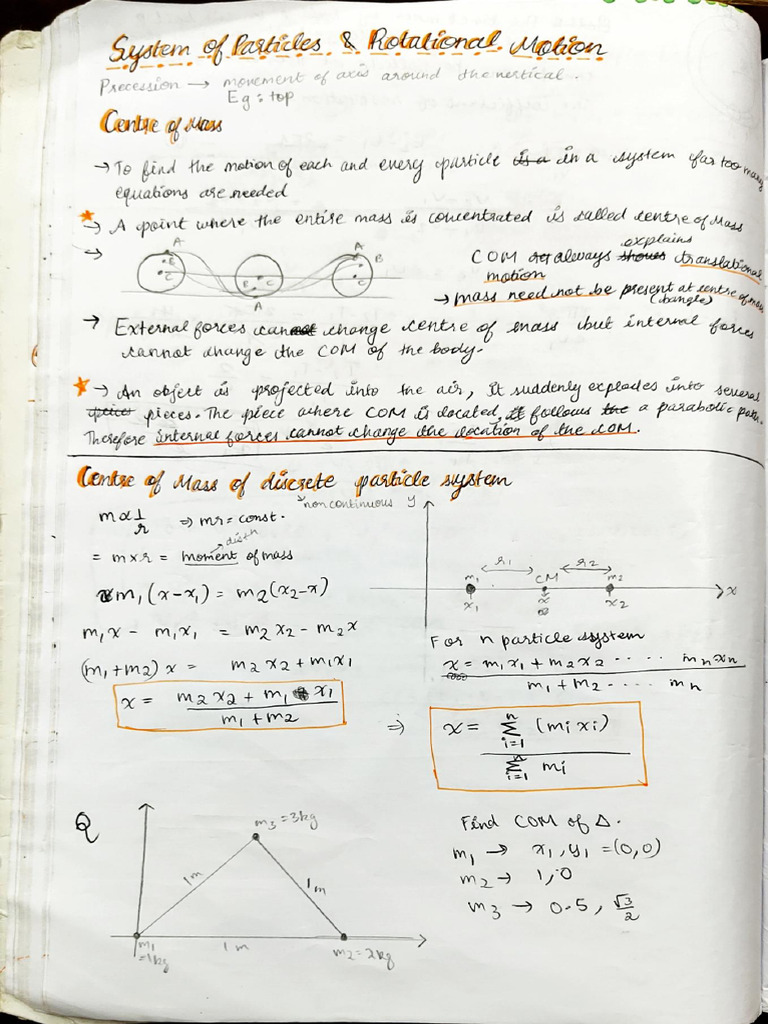 System of Particles & Rotational Motion
Precession → movement of axis around the vertical.
Eg: top
Centre of Mass
→ To find the motion of each and every particle is a in a system far too many
equations are needed
★→ A point where the entire mass is concentrated is called centre of Mass
→ A E C
E C A
A B C
explains
COM always shows translational
motion
→ mass need not be present at centre of mass
(bangle)
→ External forces cannot change centre of mass but internal forces
cannot change the COM of the body.
★→ An object is projected into the air, it suddenly explodes into several
pieces. The piece where COM is located, it follows the a parabolic path.
Therefore internal forces cannot change the location of the COM.
Centre of Mass of discrete particle system
↳ noncontinuous
m ∝ 1/r ⇒ mr = const.
dist
= m × r = moment of mass
m₁(x-x₁) = m₂(x₂-x)
m₁x - m₁x₁ = m₂x₂ - m₂x
(m₁+m₂)x = m₂x₂+m₁x₁
x = m₂x₂ + m₁x₁ / m₁+m₂
y
r₁ r₂
m₁ CM m₂
x₁ x x₂ x
For n particle system
x = m₁x₁ + m₂x₂ ..... mₙxₙ
m₁ + m₂ ..... mₙ
⇒ x = n Σ i=1 (mᵢxᵢ)
Σ i=1 mᵢ
Q
m₃ = 3kg
1m 1m
m₁ = 1kg 1m m₂ = 2kg
Find COM of Δ.
m₁ → x₁, y₁ = (0,0)
m₂ → 1,0
m₃ → 0.5, √3/2